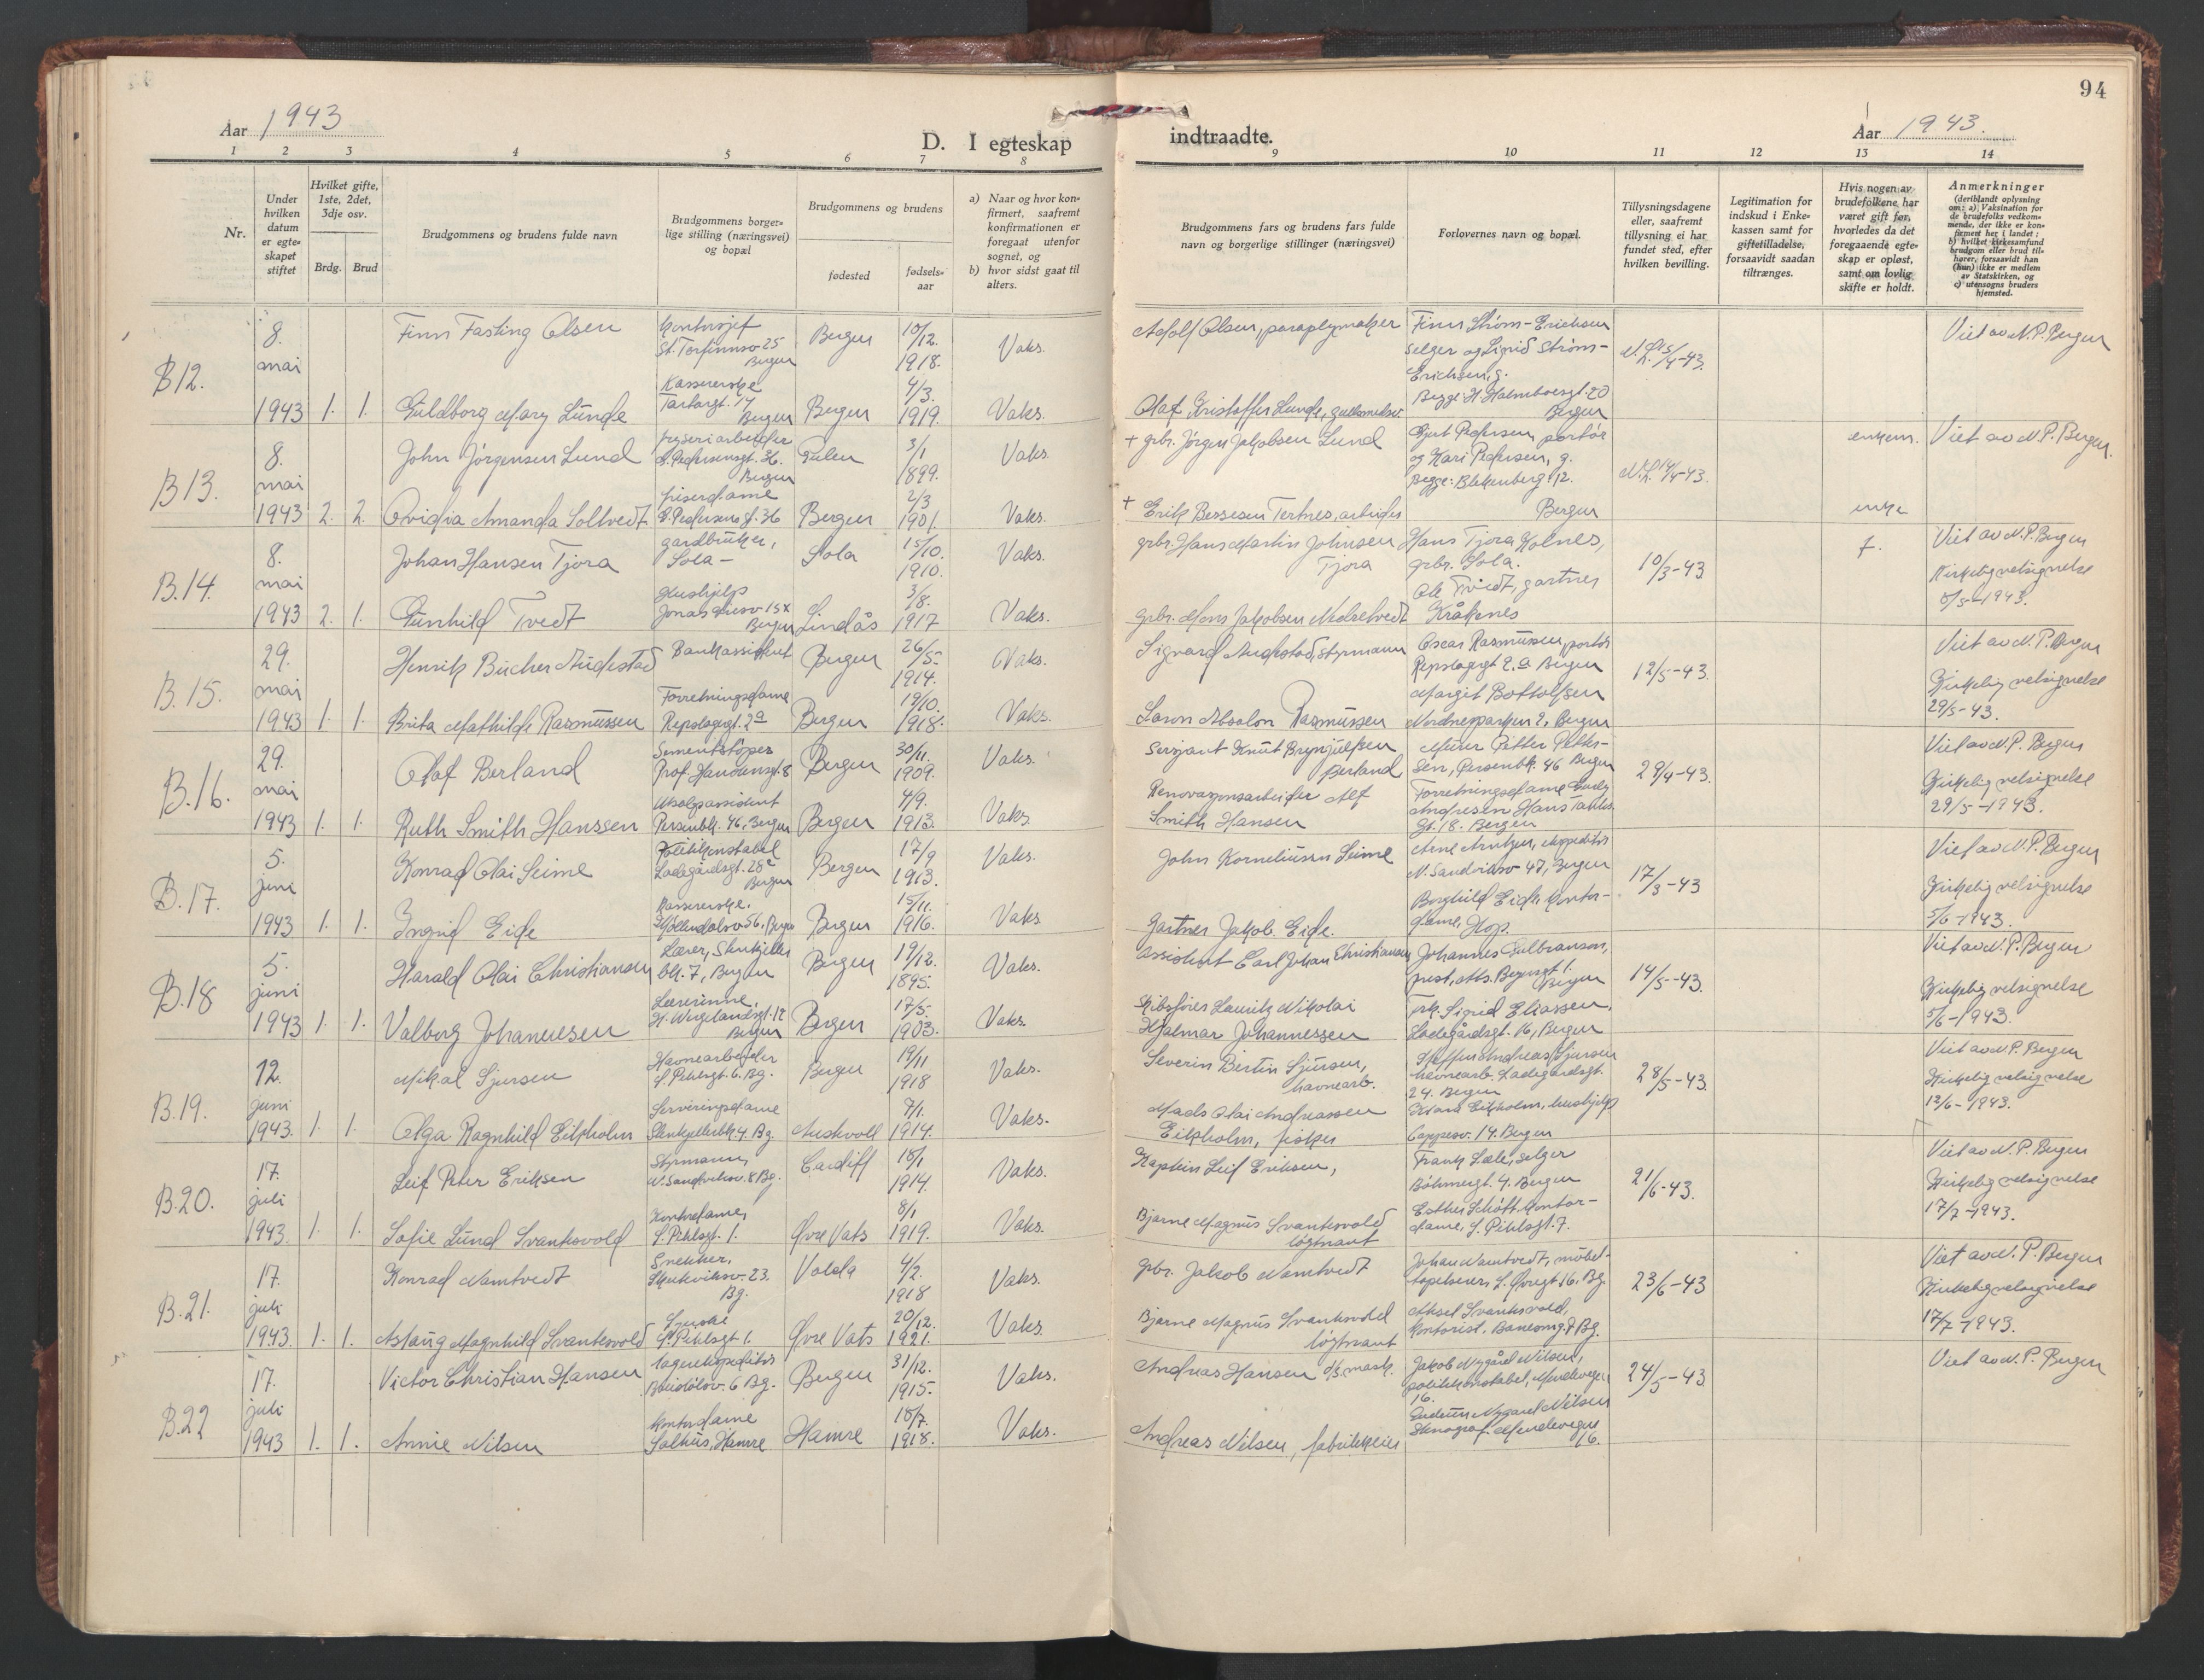 94
Aar 1943
D. I egteskap indtraadte.
Aar 1943.
1 2 3 4 5 6 7 8 9 10 11 12 13 14
Nr.
Under hvilken datum er egteskapet stiftet
Hvilket gifte, 1ste, 2det, 3dje osv.
Brdg. Brud
Brudgommens og brudens fulde navn
Brudgommens borgerlige stilling (næringsvei) og bopæl
Brudgommens og brudens
fødested
fødselsaar
a) Naar og hvor konfirmert, saafremt konfirmationen er foregaat utenfor sognet, og
b) hvor sidst gaat til alters.
Brudgommens fars og brudens fars fulde navn og borgerlige stillinger (næringsvei)
Forlovernes navn og bopæl.
Tillysningsdagene eller, saafremt tillysning ei har fundet sted, efter hvilken bevilling.
Legitimation for indskud i Enkekassen samt for giftetilladelse, forsaavidt saadan tiltrænges.
Hvis nogen av brudefolkene har været gift før, hvorledes da det foregaaende egteskap er opløst, samt om lovlig skifte er holdt.
Anmerkninger (deriblandt oplysning om: a) Vaksination for de brudefolks vedkommende, der ikke er konfirmert her i landet; b) hvilket kirkesamfund brudgom eller brud tilhører, forsaavidt han (hun) ikke er medlem av Statskirken, og c) utensogns bruders hjemsted.
B12.
8. mai 1943 1. 1.
Finn Fasting Olsen
Kontorsjef St. Torfinnsv. 25 Bergen
Bergen 10/12. 1918. Vaks.
Adolf Olsen, paraplymaker
Finn Strøm-Erichsen selger og Sigrid Strøm-Erichsen, g.
Begge: H. Holmboesgt. 20 Bergen
15/4-43.
Viet av N.P. Bergen
Guldborg Mary Lunde
Kassererske Tartargt. 14 Bergen
Bergen 4/3. 1919. Vaks.
Olaf Kristoffer Lunde, gullsmedsv.
B13.
8. mai 1943 2. 2.
John Jörgensen Lund
36. Bergen
Gulen 3/1 1899. Vaks.
+ grbr. Jörgen Jakobsen Lund
Gjert Pedersen, portör og Kari Pedersen, g.
Begge: Blekenberg 12. Bergen
14/4-43.
enkem.
Viet av N.P. Bergen.
Ovidia Amanda Soltvedt
friserdame 36
Bergen 2/3 1901. Vaks.
+ Erik Bessesen Tertnes, arbeider
enke
B.14.
8. mai 1943 2. 1.
Johan Hansen Tjora
gardbruker, Sola -
Sola 15/10. 1910. Vaks.
grbr. Hans Martin Johnsen Tjora
Hans Tjora Kolnes, grbr. Sola.
Ole Tvedt, gartner Kråkenes
10/3-43
f.
Viet av N.P. Bergen
Kirkelig velsignelse 8/5-1943.
Gunhild Tvedt
Hushjelp Bergen
Lindås 3/8. 1917 Vaks.
grbr. Mons Jakobsen Nedretvedt
B.15.
29. mai 1943 1. 1.
Henrik Bucher Audestad
Bankassistent
Bergen 26/5- 1914. Vaks.
Sigvard Audestad, styrmann
Oscar Rasmussen, portør
Repslagergt. 2a Bergen
Margit Bottolfsen
Nordnesparken 2, Bergen
12/5-43.
Viet av N.P. Bergen
Kirkelig velsignelse 29/5-43.
Brita Mathilde Rasmussen
Forretningsdame Repslagergt. 2a
Bergen 19/10. 1918. Vaks.
Absalon Rasmussen
B.16.
29. mai 1943 1. 1.
Olaf Berland
Sementstöper Prof. Hansensgt. 8
Bergen 30/11. 1909. Vaks.
Sersjant Knut Brynjulfsen Berland
Murer Petter Pettersen, Persenbk. 46 Bergen
29/4-43.
Viet av N.P. Bergen
Kirkelig velsignelse 29/5-1943.
Ruth Smith Hanssen
Utsalgsassistent Persenbk. 46, Bergen
Bergen 4/9. 1913. Vaks.
Renovasjonsarbeider Alf Smith Hansen
Forretningsdame Andresen Hans Tanks gt. 18. Bergen
B.17.
5. juni 1943 1. 1.
Konrad Olai Seime
Politikonstabel Ladegårdsgt. 28a Bergen
Bergen 17/9 1913. Vaks.
John Korneliussen Seime
Arne Arntzen, ekspeditör
N. Sandviksv. 47, Bergen
Borghild Eide, kontordame, Hop.
17/3-43
Viet av N.P. Bergen
Kirkelig velsignelse 5/6-1943.
Ingrid Eide
Kassererske. Möllendalsv. 56. Bergen
Bergen 15/11. 1916. Vaks.
Gartner Jakob Eide.
B.18
5. juni 1943 1. 1.
Harald Olai Christiansen
Lærer, Starkjeller bk. 7, Bergen
Bergen 19/12. 1895. Vaks.
Assistent Carl Johan Christiansen
Johannes Gulbranson, prest, Bergen
14/5-43.
Viet av N.P. Bergen
Kirkelig velsignelse 5/6-1943.
Valborg Johannesen
Lærerinne, H. Wergelandsgt. 12 Bergen
Bergen 17/5. 1903. Vaks.
Skibsfører Lauritz Nikolai Hjalmar Johannessen
Frk. Sigrid Eliassen, Ladegårdsgt. 16, Bergen
B.19.
12. juni 1943. 1. 1.
Mikal Sjursen
Havnearbeider S. Pihlsgt. 6. Bg.
Bergen 19/11 1918 Vaks.
Severin Bertin Sjursen, havnearb.
Steffen Andreas Sjursen havnearb. Ladegårdsgt. 24. Bergen
28/5-43.
Viet av N.P. Bergen
Kirkelig velsignelse 12/6-1943.
Olga Ragnhild Eikholm
Serveringsdame Starkjellerbk. 4. Bg.
Austevoll 7/1. 1914. Vaks.
Mads Olai Andreassen Eikholm, fisker
Eikholm, hushjelp
Cappesv. 14. Bergen
B.20.
17. juli 1943. 1. 1.
Leif Peter Eriksen
Styrmann, N. Sandviksv. 8 Bg.
Cardiff 18/1 1914. Vaks.
Kaptein Leif Eriksen,
Frank Lele, selger
Böhmergt. 4. Bergen
Esther Schött, kontordame, S. Pihlsgt. 7.
21/6-43.
Viet av N.P. Bergen
Kirkelig velsignelse 17/7-1943.
Sofie Lund Svanksvold
Kontordame, S. Pihlsgt. 1.
Øvre Vats 8/1 1919. Vaks.
Bjarne Magnus Svanksvold løytnant
B.21.
17. juli 1943. 1. 1.
Konrad Namtvedt
Snekker, 23. Bg.
Volda 4/2. 1918 Vaks.
grbr. Jakob Namtvedt
Johan Namtvedt, möbeltapetserer, 16. Bg.
23/6-43
Viet av N.P. Bergen
Kirkelig velsignelse 17/7-1943.
Astaug Magnhild Svanksvold
S. Pihlsgt 1.
Øvre Vats 20/12. 1921. Vaks.
Bjarne Magnus Svanksvold løytnant
Aksel Svanksvold, kontorist, Bg.
B.22
17. juli 1943 1. 1.
Victor Christian Hansen
lagerekspeditör 6 Bg.
Bergen 31/12. 1915. Vaks.
Andreas Hansen d/s. mask.
Jakob Nygård Nilsen, politikonstabel, 16.
24/5-43
Viet av N.P. Bergen
Annie Nilsen
kontordame Salhus, Hamre
Hamre 18/7. 1918. Vaks.
Andreas Nilsen, fabrikkeier
Gudrun Nygård Nilsen Stenograf. 16.